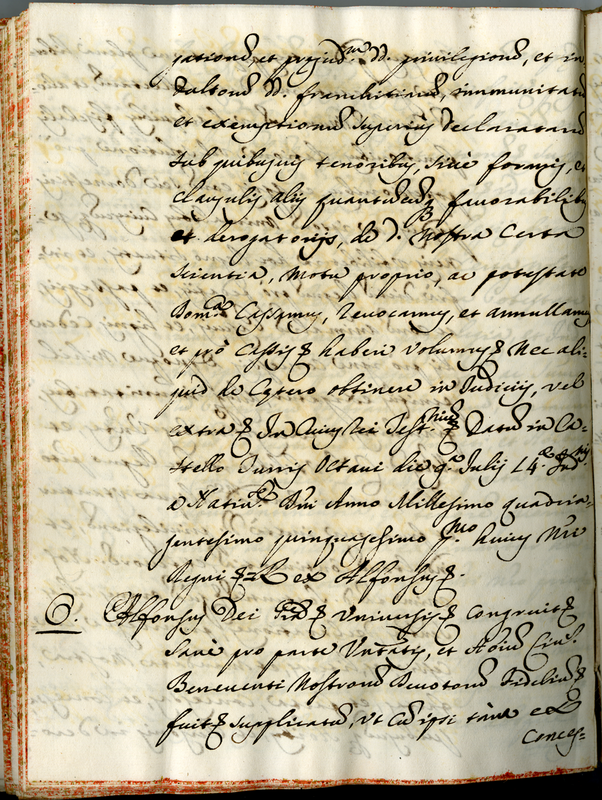 rationes, et prejud.m dd. privilegiorũ, et in
dultorũ dd. franchitiarũ, immunitatũ
et exemptionũ superius declaratarũ
sub quibusvis tenoribus, sive formis, et
clausulis alijs quantũcũq favorabilibus
et derogatorijs, de d. Nostra Certa
scientia, Motu proprio, ac potestate
Dom.ca Cassamus, revocamus, et annullamus
et pro Cassis haberi volumus Nec ali=
quid de Cetero obtinere in Judicijs, vel
extra In Cuius rei test. Datũ in Ca=
stello Turris Octavi die 9.a Julij 14.e Ind.
a Nativ. Dni Anno Millesimo quadrin=
gentesimo quinquagesimo p.mo huius Nri
Regni Rex Alfonsus.
6. Alfonsus Dei Universis Congruit
Sane pro parte et Civ.
Beneventi Nostrorũ Devotorũ Fideliũ
fuit supplicatũ, ut Cũ ipsi
Conces=